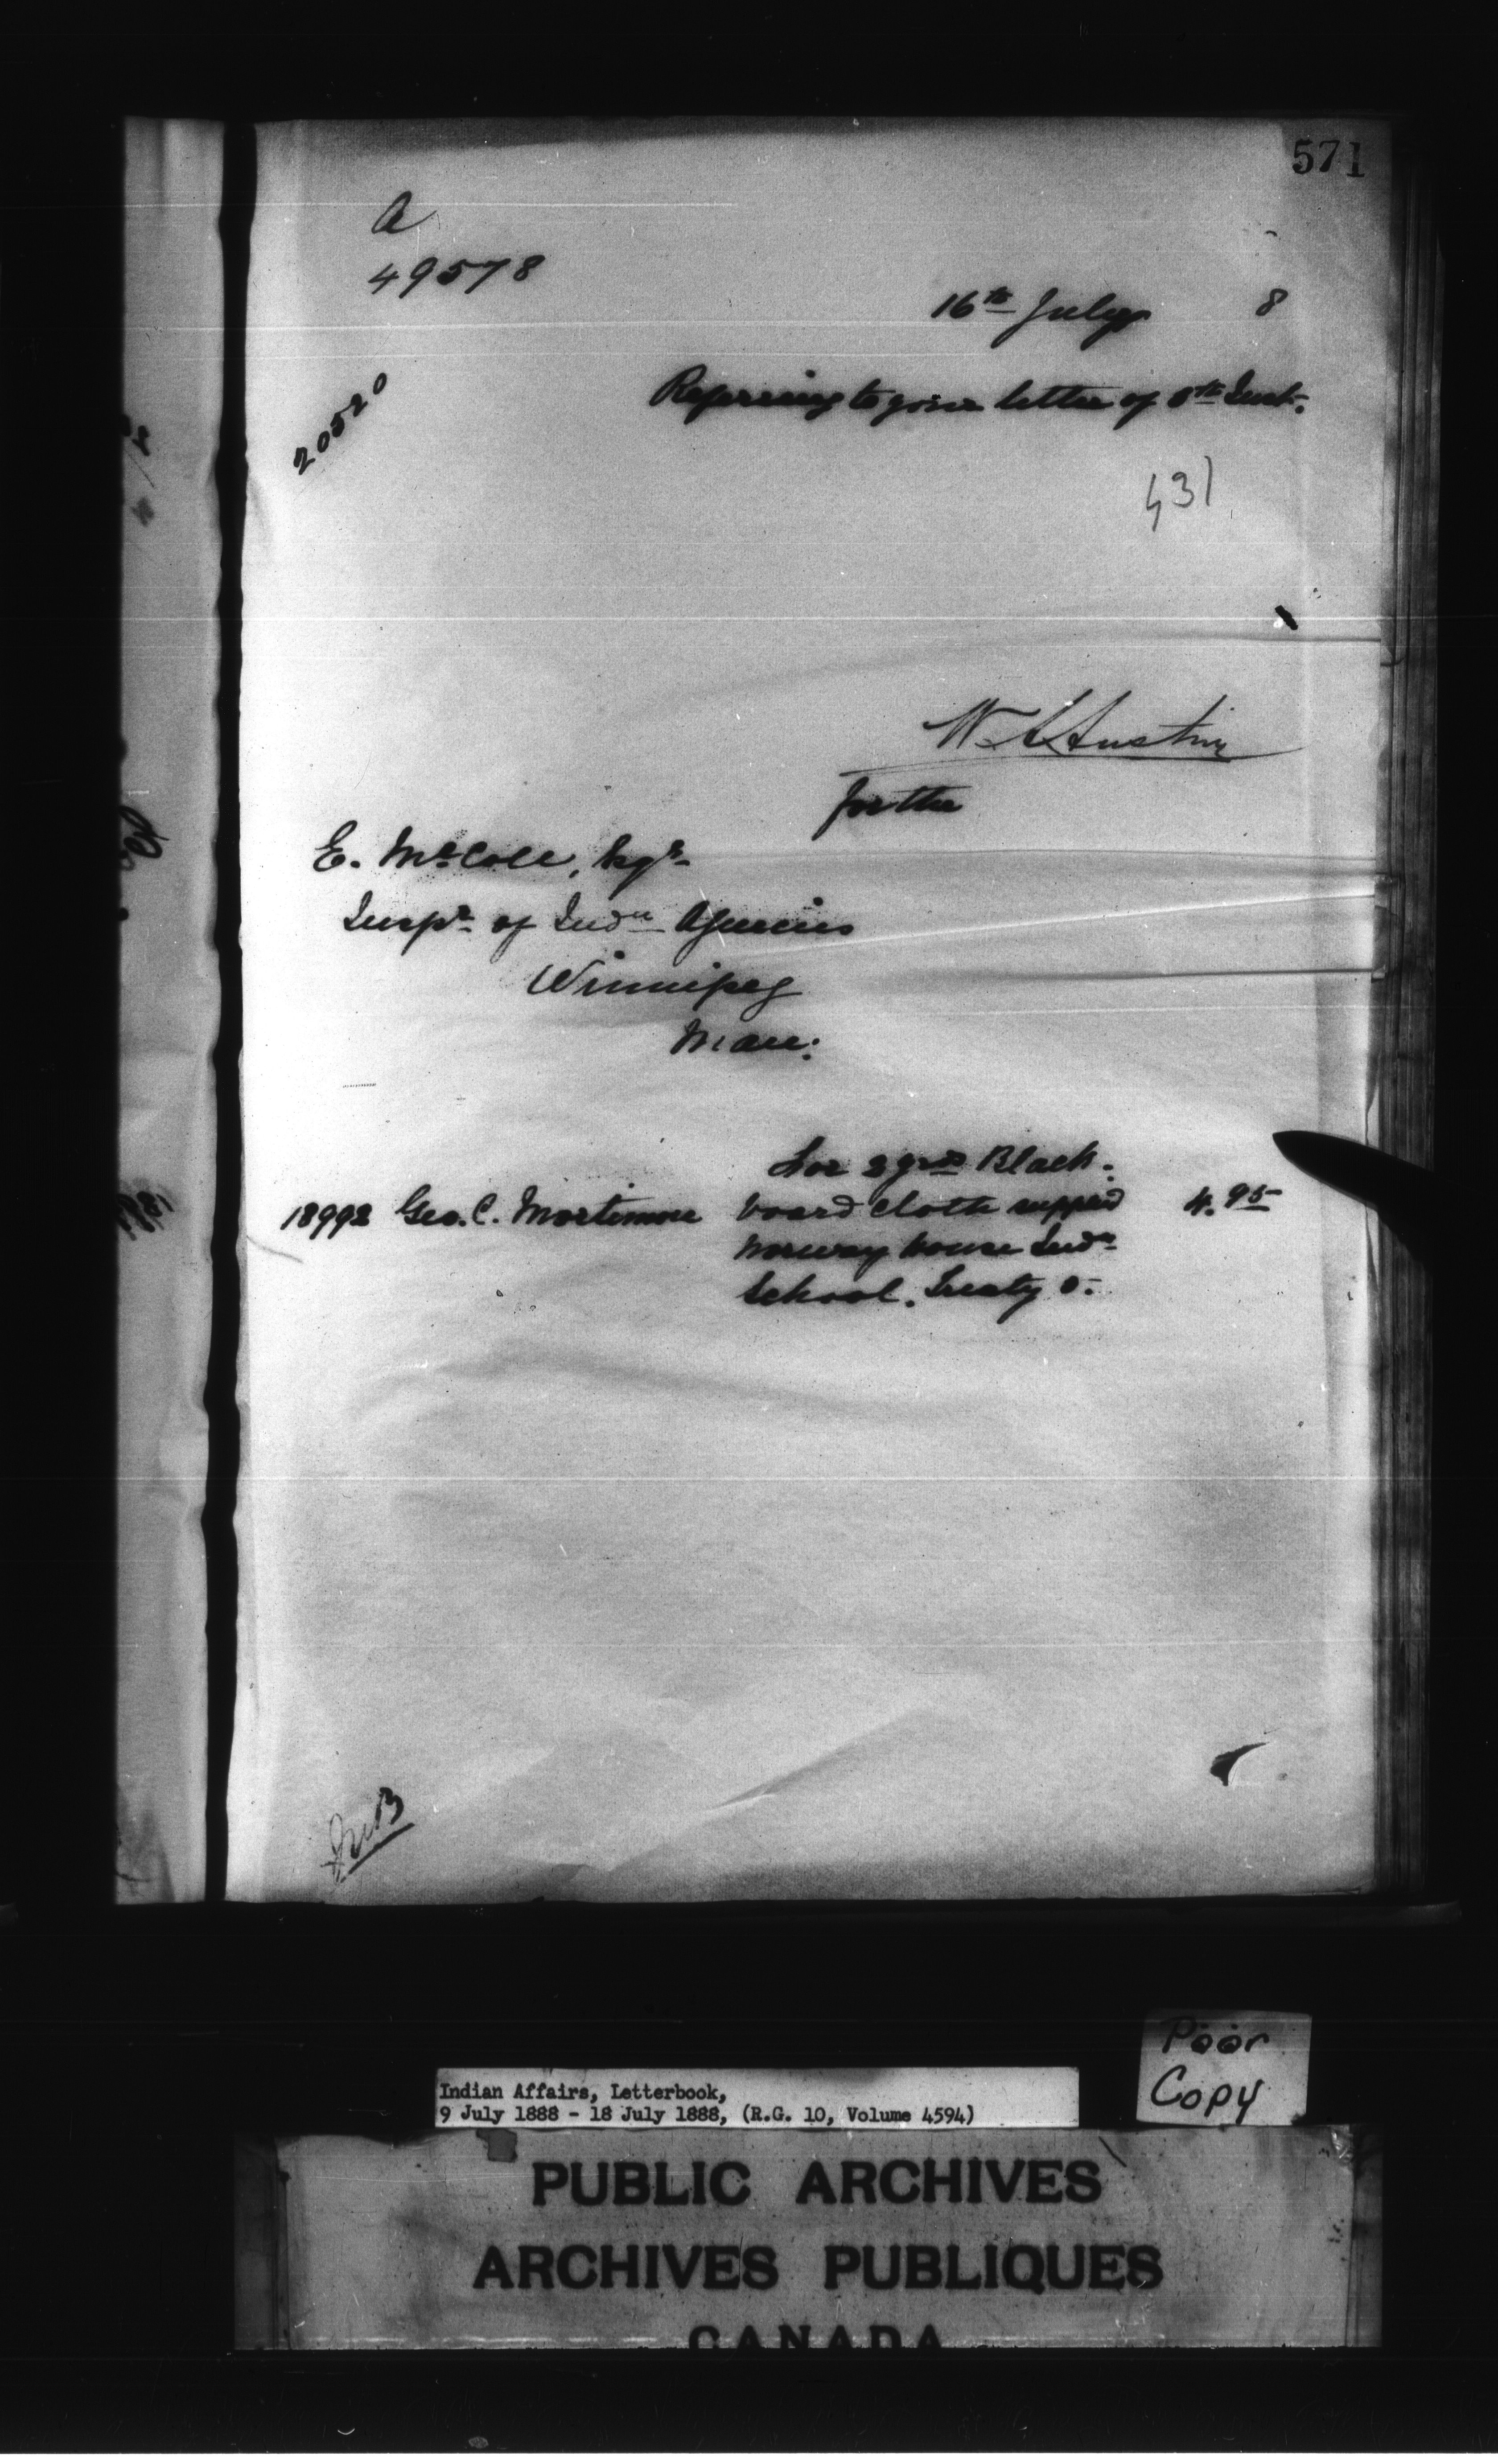 571
A
49578
16th July 8
20520
Referring to your letter of 5th Inst.
431
W. A. Austin
for the
E. McColl, Esqr
Inspr of Indn Agencies
Winnipeg
Man:
For 3 yrds Black-
18992 Geo. C. Mortimore board cloth suppd 4.95
Norway House Indn
School, Treaty 5.
Indian Affairs, Letterbook,
9 July 1888 - 18 July 1888, (R.G. 10, Volume 4594)
Poor
Copy
PUBLIC ARCHIVES
ARCHIVES PUBLIQUES
CANADA